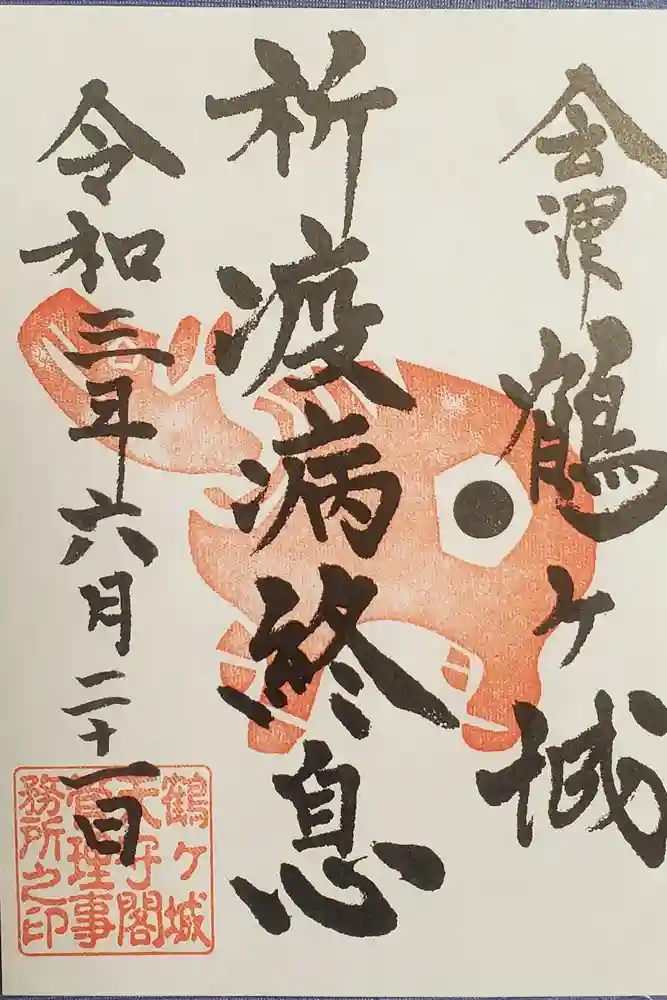 会津
鶴ヶ城
祈疫病終息
令和三年六月二十一日
鶴ヶ城
天守閣
管理事
務所之印